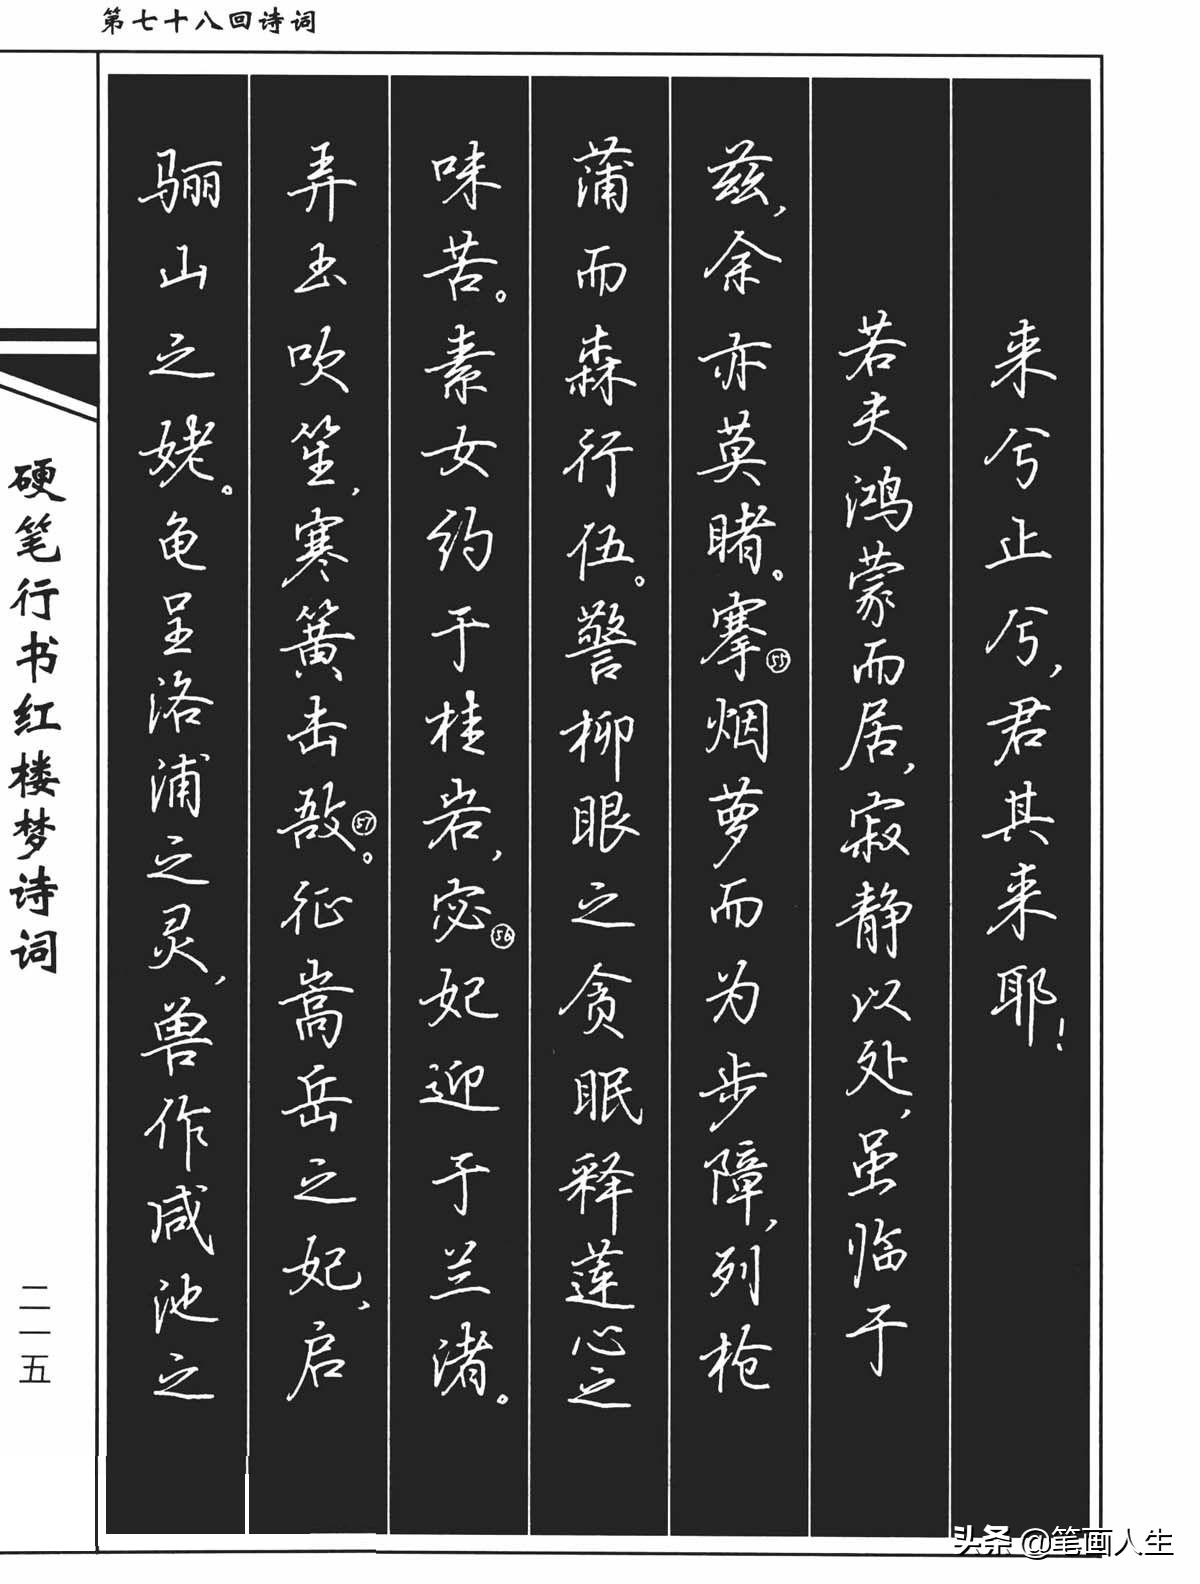 第七十八回诗词
来兮止兮，君其来耶！
若夫鸿蒙而居，寂静以处，虽临于
兹，余亦莫睹。搴㊺烟萝而为步障，列枪
蒲而森行伍。警柳眼之贪眠，释莲心之
味苦。素女约于桂岩，宓㊻妃迎于兰渚。
弄玉吹笙，寒簧击敔㊼。征嵩岳之妃，启
骊山之姥。龟呈洛浦之灵，兽作咸池之
硬笔行书红楼梦诗词
二一五
头条 @笔画人生